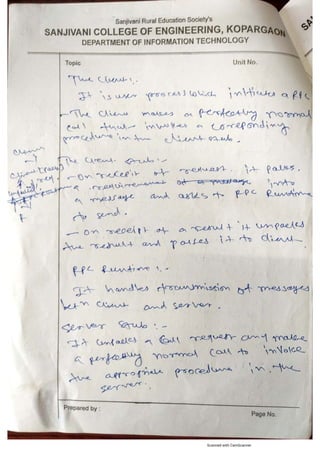 Sanjivani Rural Education Society's
SANJIVANI COLLEGE OF ENGINEERING, KOPARGAON
DEPARTMENT OF INFORMATION TECHNOLOGY
Topic
Unit No.
The client :-
It is user process which initiates a RPC
- The client makes a perfectly normal
call that invokes a correponding
procedure in the client stub.
The client stub :-
- on receipt of request it packs
a requirement into
a message and asks to RPC Runtime
to send.
- on receipt of a result it unpacks
the result and passes it to client
RPC Runtime :-
It handles transmission of messages
betn client and server.
Server stub :-
It unpacks a call request and make
a perfectly normal call to invoke
the appropriate procedure in the
server.
Prepared by :
Page No.
Scanned with CamScanner